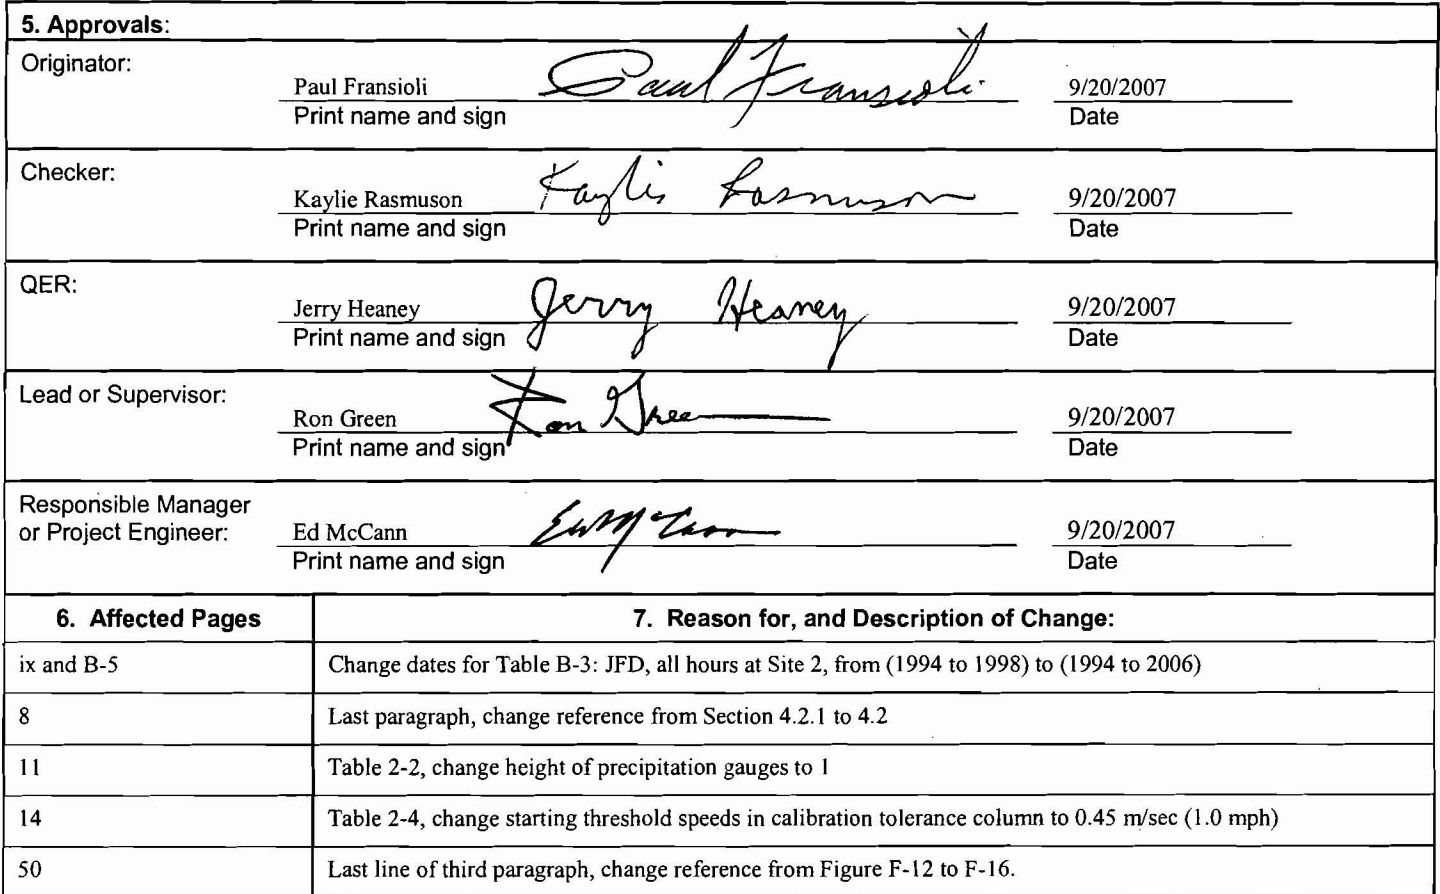 5. Approvals:
Originator:
Paul Fransioli Paul Fransioli 9/20/2007
Print name and sign Date
Checker:
Kaylie Rasmuson Kaylie Rasmuson 9/20/2007
Print name and sign Date
QER:
Jerry Heaney Jerry Heaney 9/20/2007
Print name and sign Date
Lead or Supervisor:
Ron Green Ron Green 9/20/2007
Print name and sign Date
Responsible Manager
or Project Engineer: Ed McCann Ed McCann 9/20/2007
Print name and sign Date
6. Affected Pages 7. Reason for, and Description of Change:
ix and B-5 Change dates for Table B-3: JFD, all hours at Site 2, from (1994 to 1998) to (1994 to 2006)
8 Last paragraph, change reference from Section 4.2.1 to 4.2
11 Table 2-2, change height of precipitation gauges to 1
14 Table 2-4, change starting threshold speeds in calibration tolerance column to 0.45 m/sec (1.0 mph)
50 Last line of third paragraph, change reference from Figure F-12 to F-16.